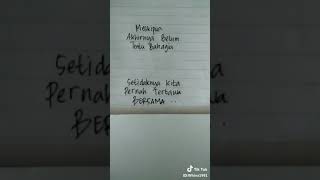 Meskipun
Akhirnya Belum
Tentu Bahagia
Setidaknya Kita
Pernah Tertawa
BERSAMA ..
BERSAMA
Tik Tok